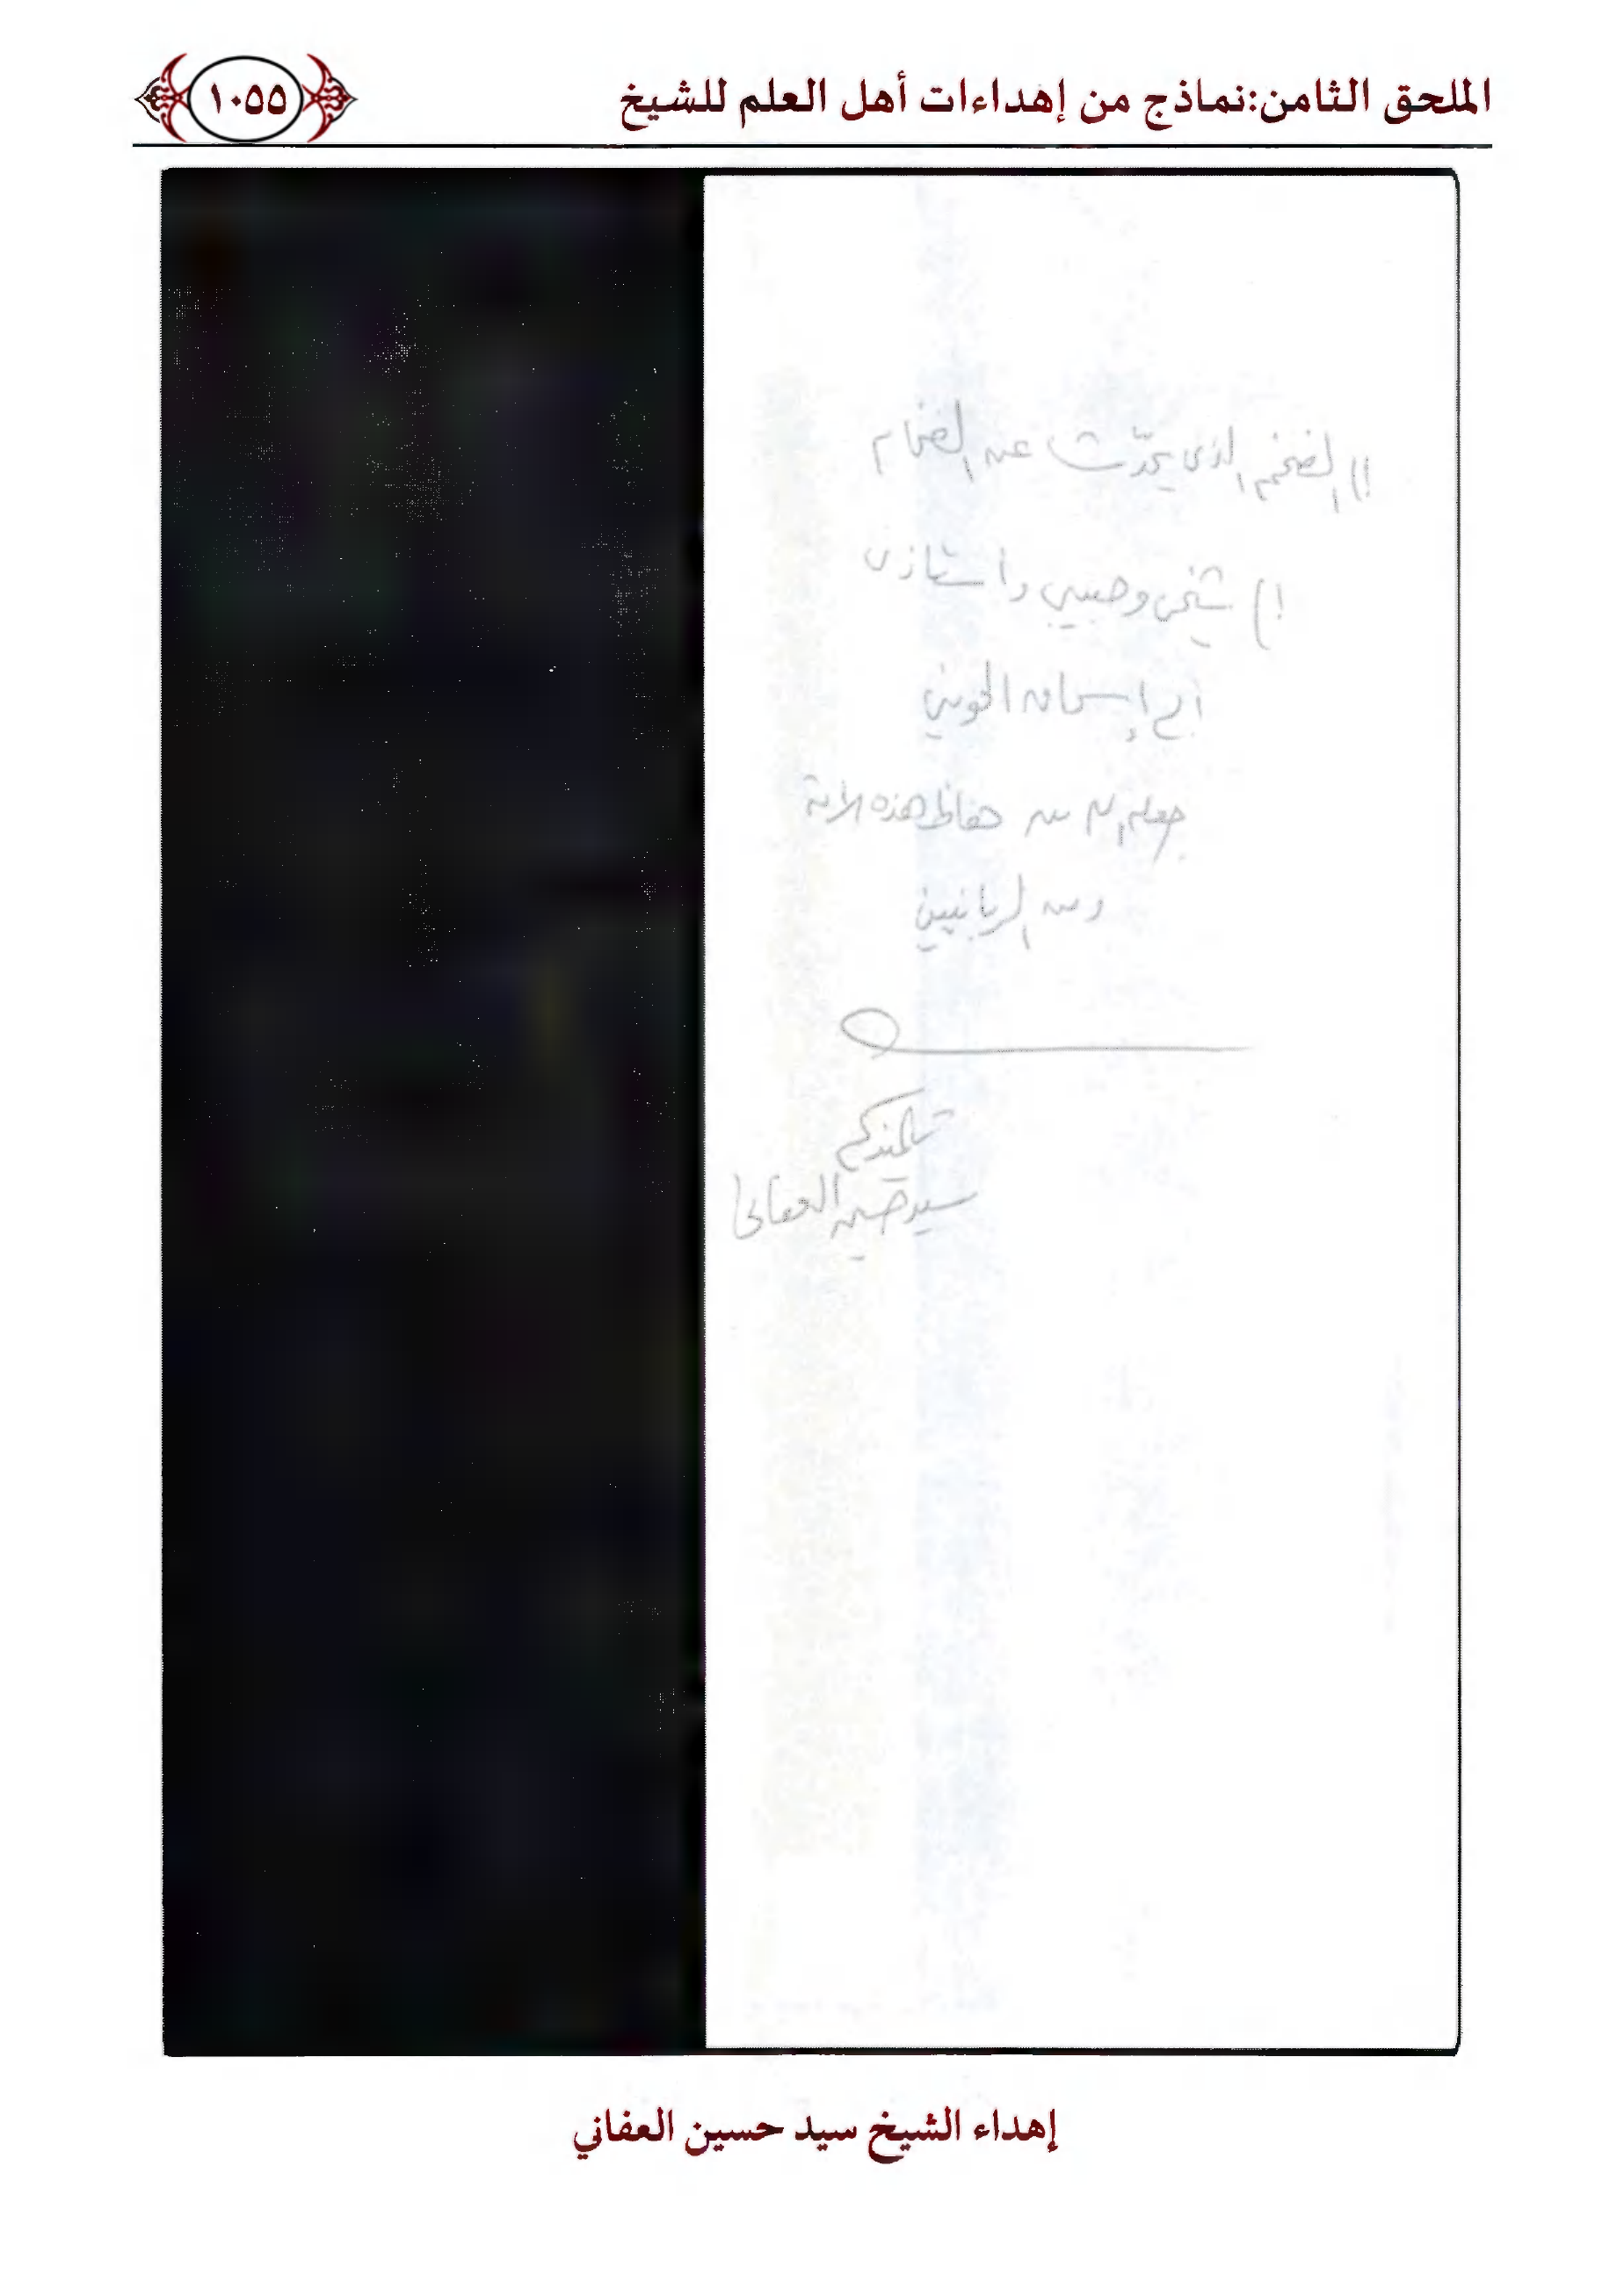 الملحق الثامن:نماذج من إهداءات أهل العلم للشيخ
١٠٥٥
إلى الضخم الذى يحدّث عن الضخام
إلى شيخى وحبيبي وأستاذى
أبى إسحاق الحوينى
جعله الله من حفاظ هذه الأمة
ومن الربانيين
تلميذكم
سيد حسين العفانى
إهداء الشيخ سيد حسين العفاني